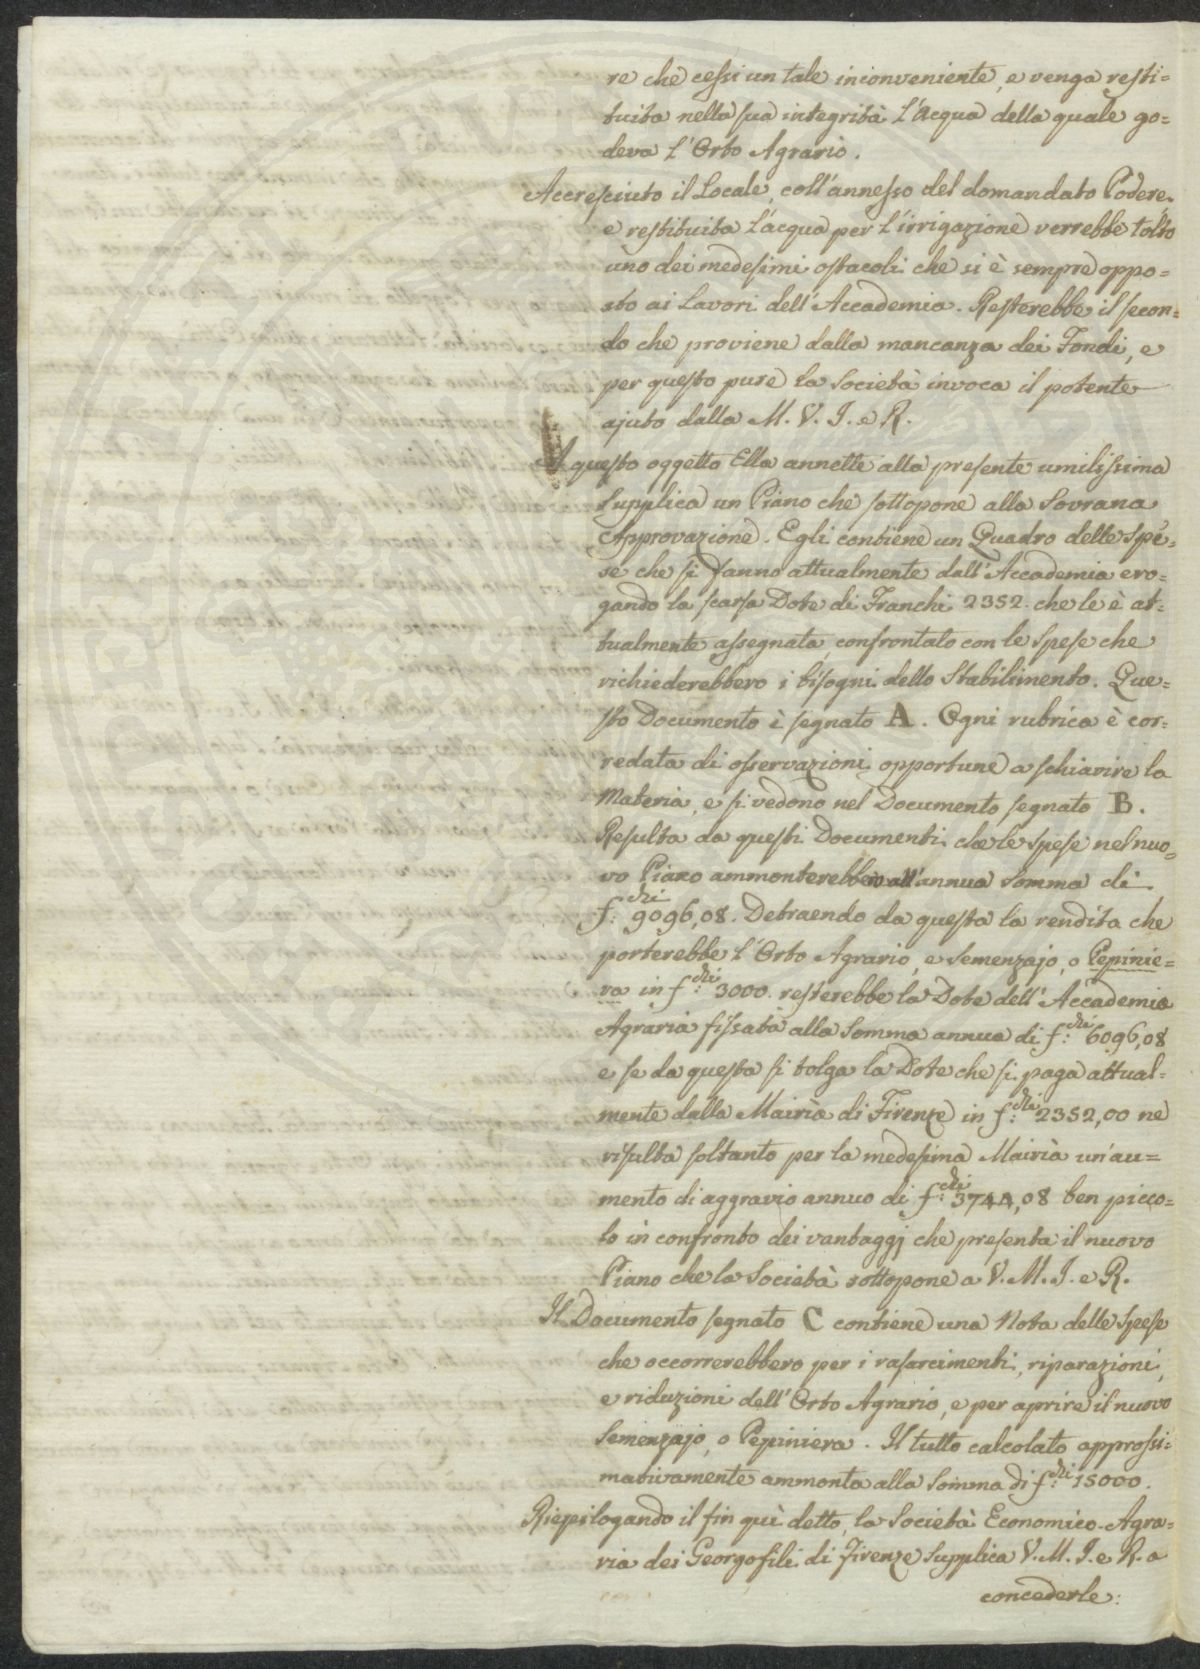 re che cessi un tale inconveniente, e venga resti=
tuita nella sua integrità l'Acqua della quale go=
deva l'Orto Agrario.
Accresciuto il Locale, coll'annesso del domandato Podere,
e restituita l'acqua per l'irrigazione verrebbe tolto
uno dei medesimi ostacoli che si è sempre oppo=
sto ai Lavori dell'Accademia. Resterebbe il secon=
do che proviene dalla mancanza dei Fondi, e
per questo pure la Società invoca il potente
ajuto dalla M. V. I. e R.
A questo oggetto Ella annette alla presente umilissima
Supplica un Piano che sottopone alla Sovrana
Approvazione. Egli contiene un Quadro delle Spe=
se che si fanno attualmente dall'Accademia ero=
gando la scarsa Dote di Franchi 2352. che le è at=
tualmente assegnata, confrontato con le Spese che
richiederebbero i bisogni dello Stabilimento. Que=
sto Documento è segnato A. Ogni rubrica è cor=
redata di osservazioni opportune a schiarire la
Materia, e si vedono nel Documento segnato B.
Resulta da questi Documenti che le Spese nel nuo=
vo Piano ammonterebbero all'annua Somma di
f:chi 9096,08. Detraendo da questa la rendita che
porterebbe l'Orto Agrario, e Semenzajo, o Pepinie=
ra in f:chi 3000. resterebbe la Dote dell'Accademia
Agraria fissata alla Somma annua di f:chi 6096,08
e se da questa si tolga la Dote che si paga attual=
mente dalla Mairia di Firenze in f:chi 2352,00 ne
risulta soltanto per la medesima Mairia un'au=
mento di aggravio annuo di f:chi 3744,08 ben picco=
lo in confronto dei vantaggj che presenta il nuovo
Piano che la Società sottopone a V. M. I. e R.
Il Documento segnato C contiene una Nota delle Spese
che occorrerebbero per i rasarcimenti, riparazioni,
e riduzioni dell'Orto Agrario, e per aprire il nuovo
Semenzajo, o Pepiniera. Il tutto calcolato approssi=
mativamente ammonta alla Somma di f:chi 15000.
Riepilogando il fin quì detto, la Società Economico-Agra=
ria dei Georgofili di Firenze Supplica V. M. I. e R. a
concederle: